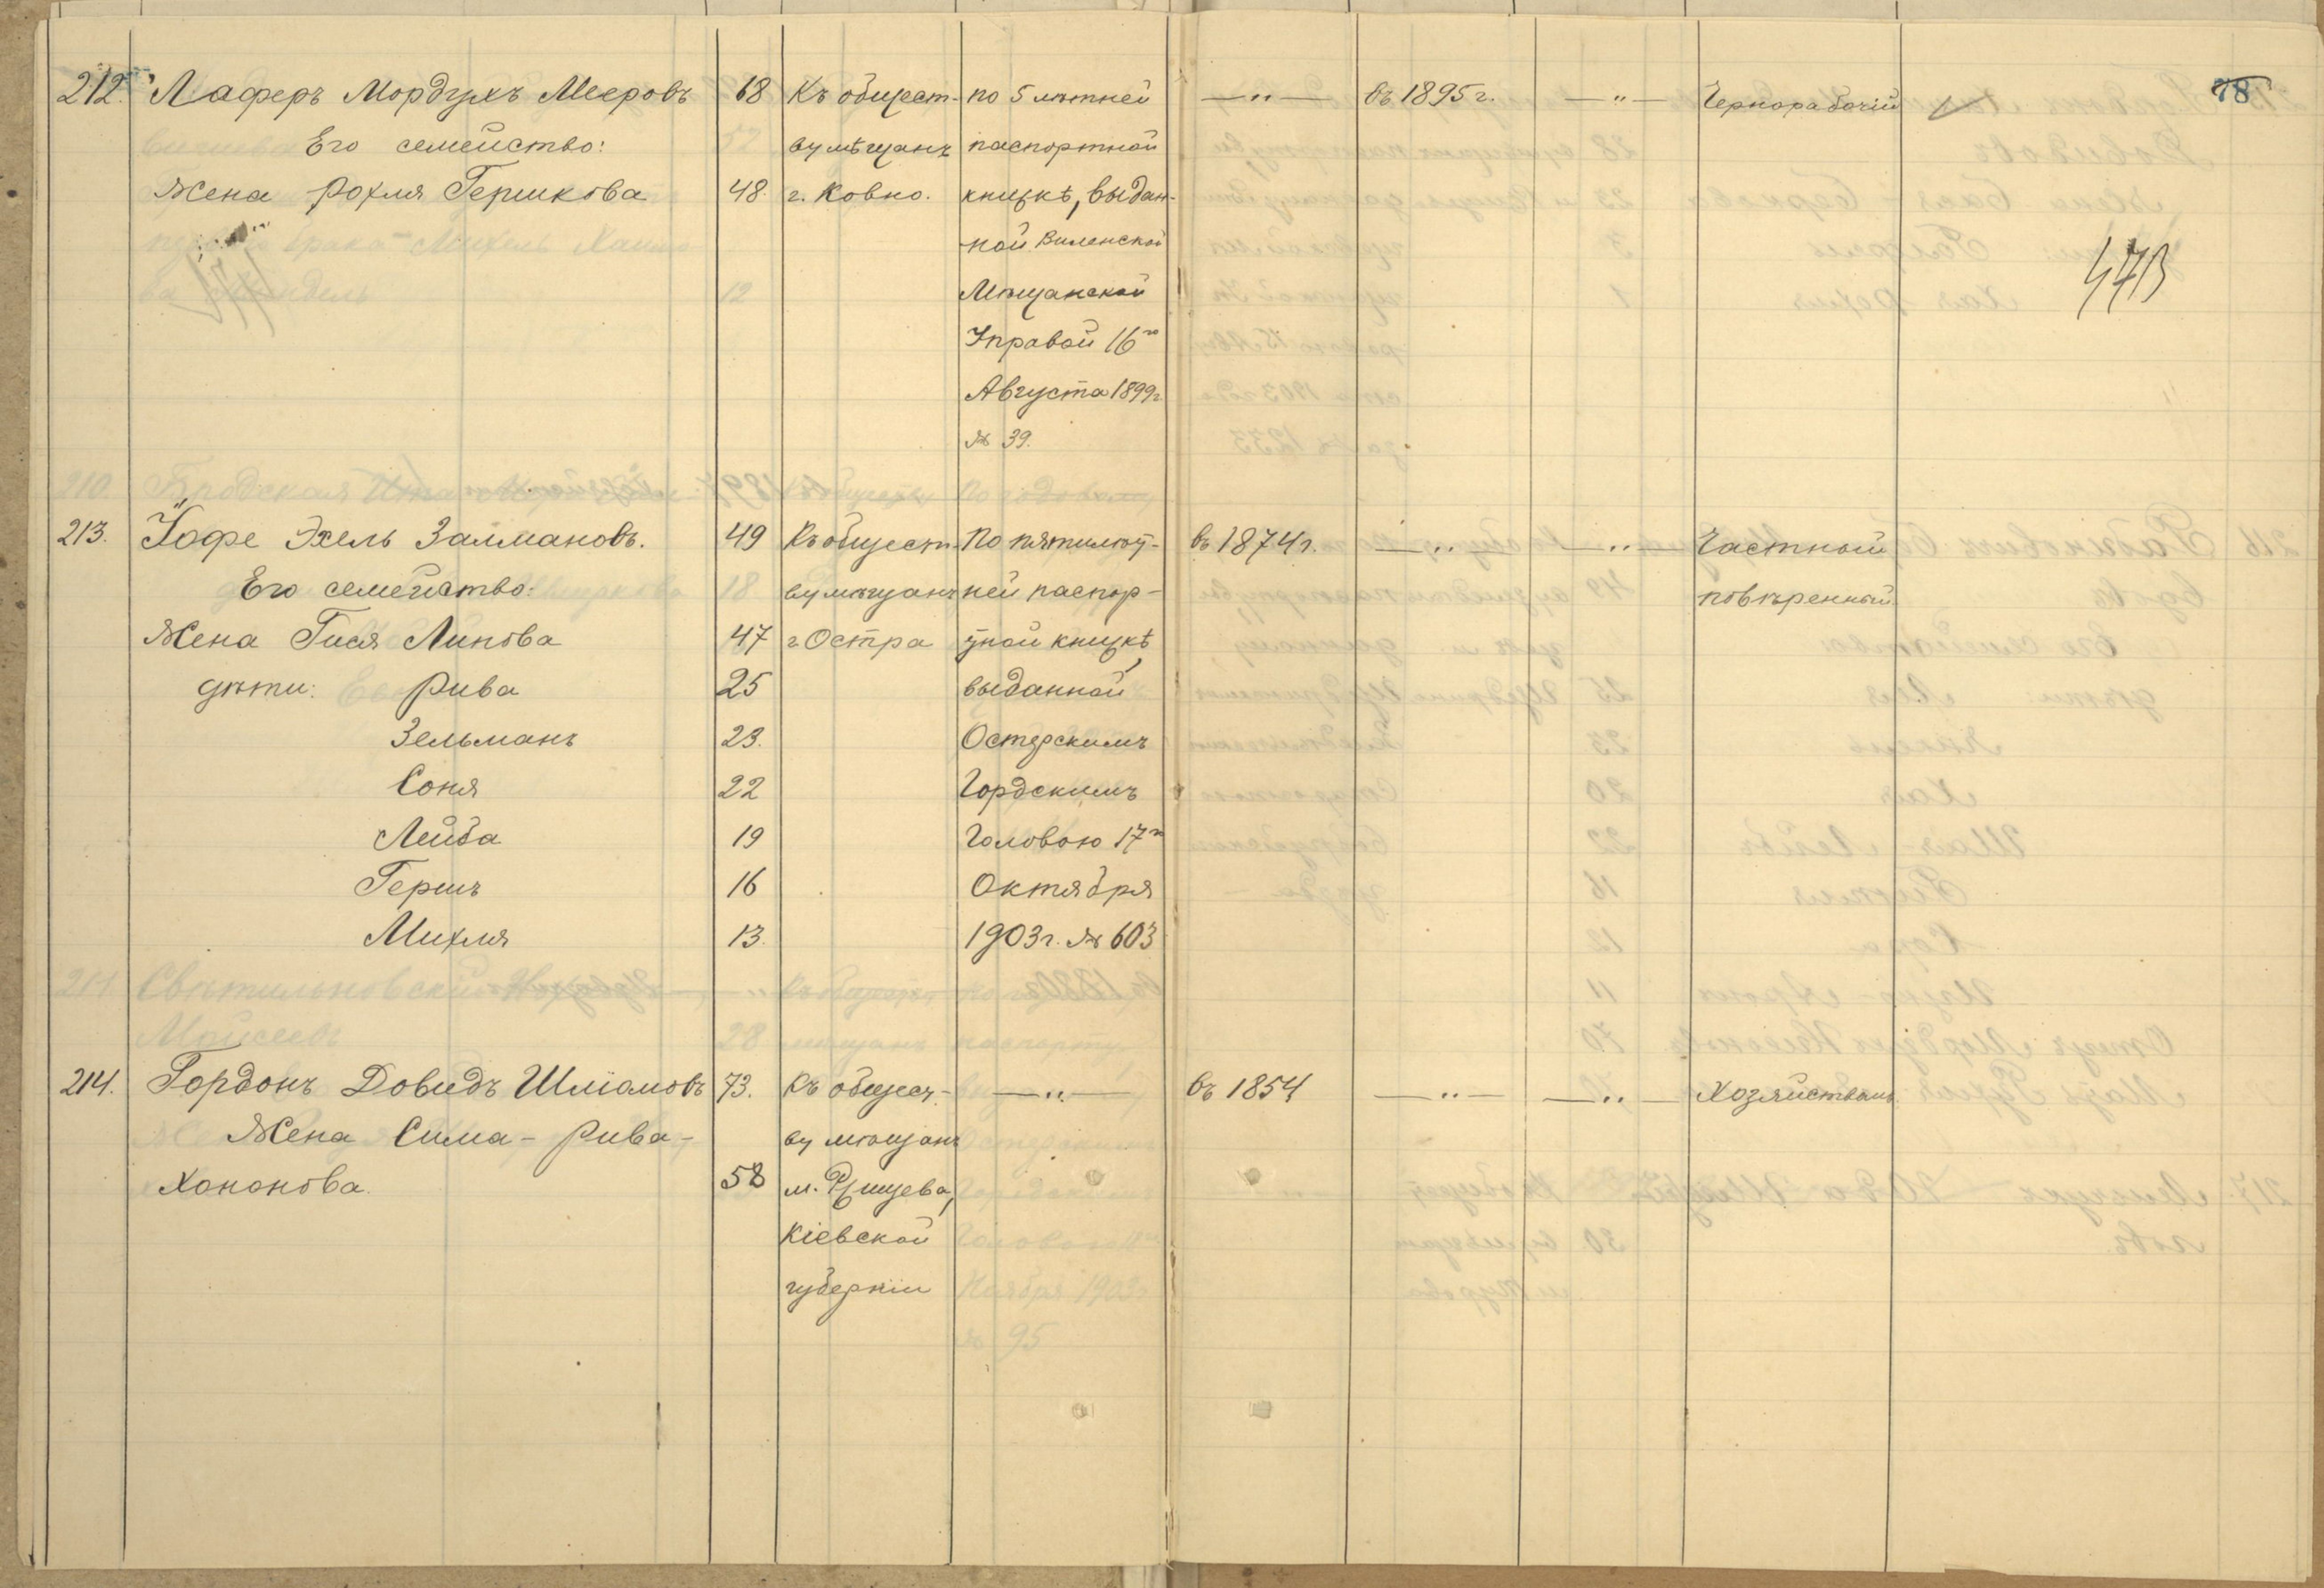 212. Лаферъ Мордухъ Мееровъ 68 Къ общест- по 5 лѣтней —"— въ 1895 г. —"— Чернорабочій 78
Его семейство: ву мѣщанъ паспортной
Жена Рохля Гершкова 48. г. Ковно. книжкѣ, выдан-
ной Виленской
Мѣщанской
Управой 16го
Августа 1899 г.
№ 39.
213. Іофе Эхель Залмановъ. 49 Къ общест- По пятилѣт- въ 1874 г. —"— —"— Частный
Его семейство: ву мѣщанъ ней паспор- повѣренный
Жена Гися Липова 47 г Остра тной книжкѣ,
дѣти: Рива 25 выданной
Зельманъ 23. Остерскимъ
Соня 22 Гордскимъ
Лейба 19 Головою 17го
Гершъ 16 Октября
Михля 13. 1903 г. № 603
214. Гордонъ Довидъ Шліомовъ 73. Къ общест- —"— въ 1854 —"— —"— Хозяйствомъ
Жена Сима-Рива- ву мѣщанъ
Хононова 58 м. Ржищева,
Кіевской
губерніи